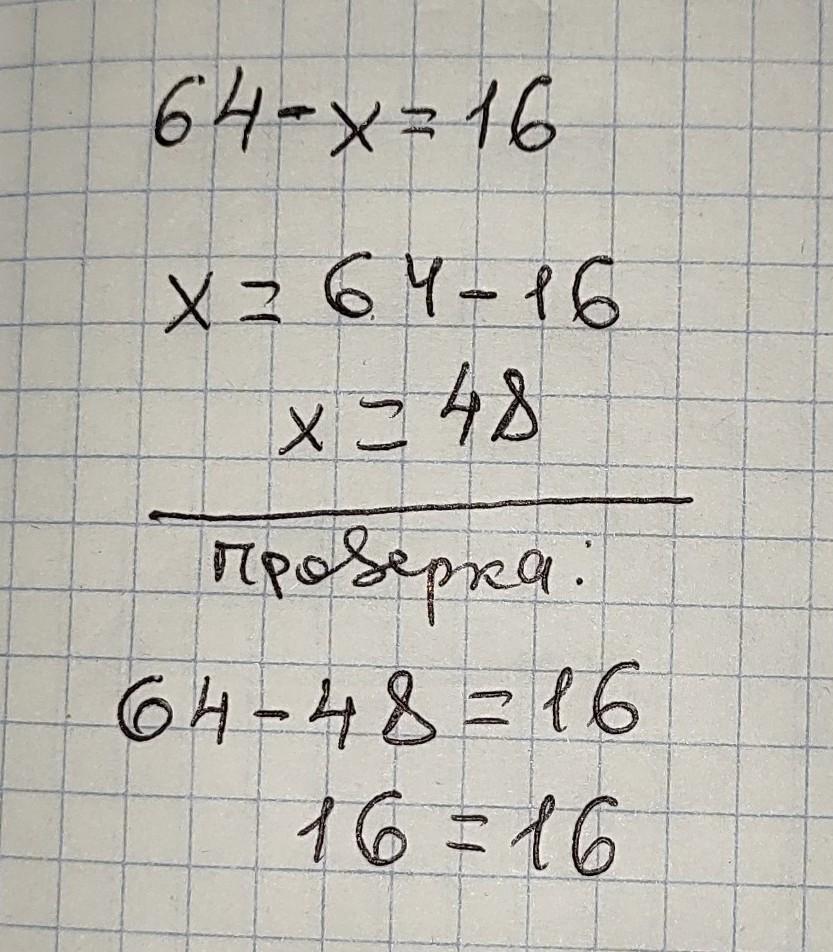 64-x=16
x=64-16
x=48
Проверка:
64-48=16
16=16